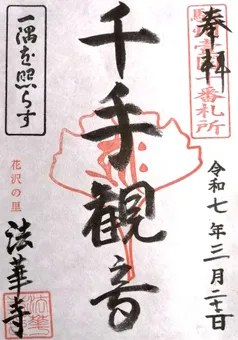 奉拝
駿河一国十番札所
令和七年三月二十日
千手観音
一隅を照らす
花沢の里
法華寺